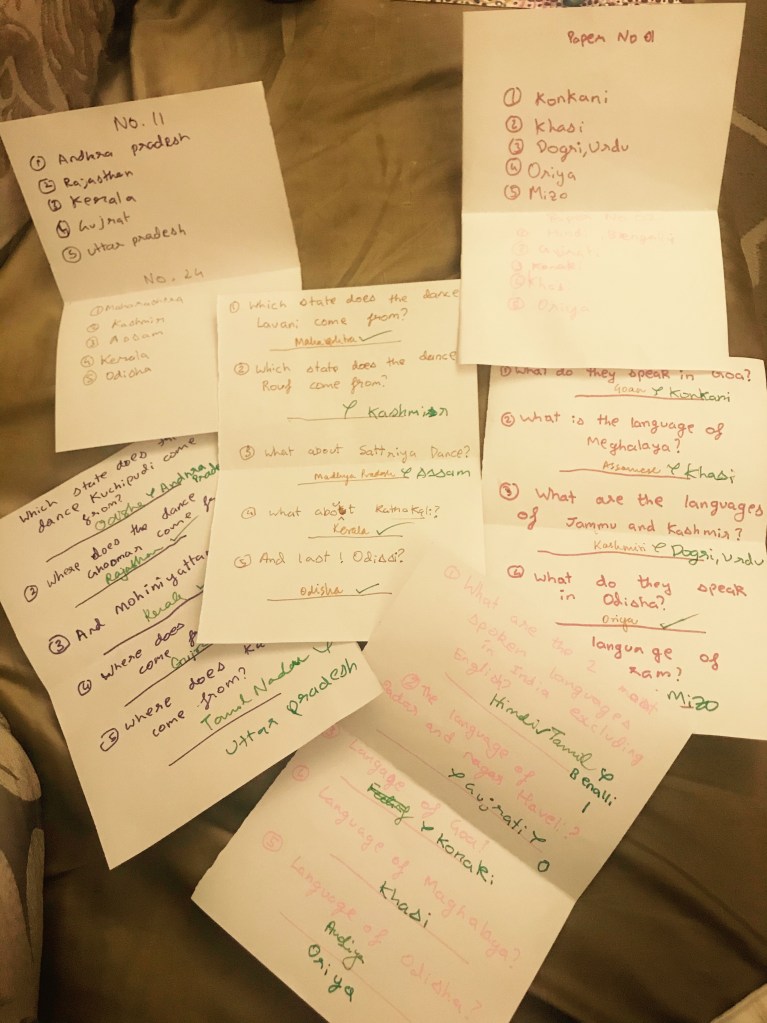 No. 11
① Andhra pradesh
② Rajasthan
③ Kerala
④ Gujrat
⑤ Uttar pradesh
No. 24
① Maharashtra
② Kashmir
③ Assam
④ Kerala
⑤ Odisha
Paper No 01
① Konkani
② Khasi
③ Dogri, Urdu
④ Oriya
⑤ Mizo
① Which state does the dance
Lavani come from?
② Which state does the dance
Rouf come from?
Kashmir
③ What about Sattriya Dance?
Madhya Pradesh Assam
④ What about Kathakali?
Kerala
⑤ And last! Odissi?
Odisha
① What do they speak in Goa?
Goan Konkani
② What is the language of
Meghalaya?
Assamese Khasi
③ What are the languages
of Jammu and Kashmir?
Kashmiri Dogri, Urdu
④ What do they speak
in Odisha?
Oriya
language of
ram?
Mizo
Which state does the
dance Kuchipudi come
from?
Odisha Andhra
Prade
② Where does the dance
Ghoomar come fr
Rajasthan
③ And Mohiniyattam
Kerala
④ Where does
come fr
Gujr
⑤ Where does Ka
come from?
Tamil Nadu
Uttar pradesh
① What are the 2 most
spoken languages
in India excluding
English?
Hindi Tamil
Benalli
1
② The language of
Dadar and nagar Haveli?
Gujrati
0
Langage of Goa!
Konaki
④ Language of Maghalaya?
Khasi
⑤ Language of Odisha?
Andiya
Oriya